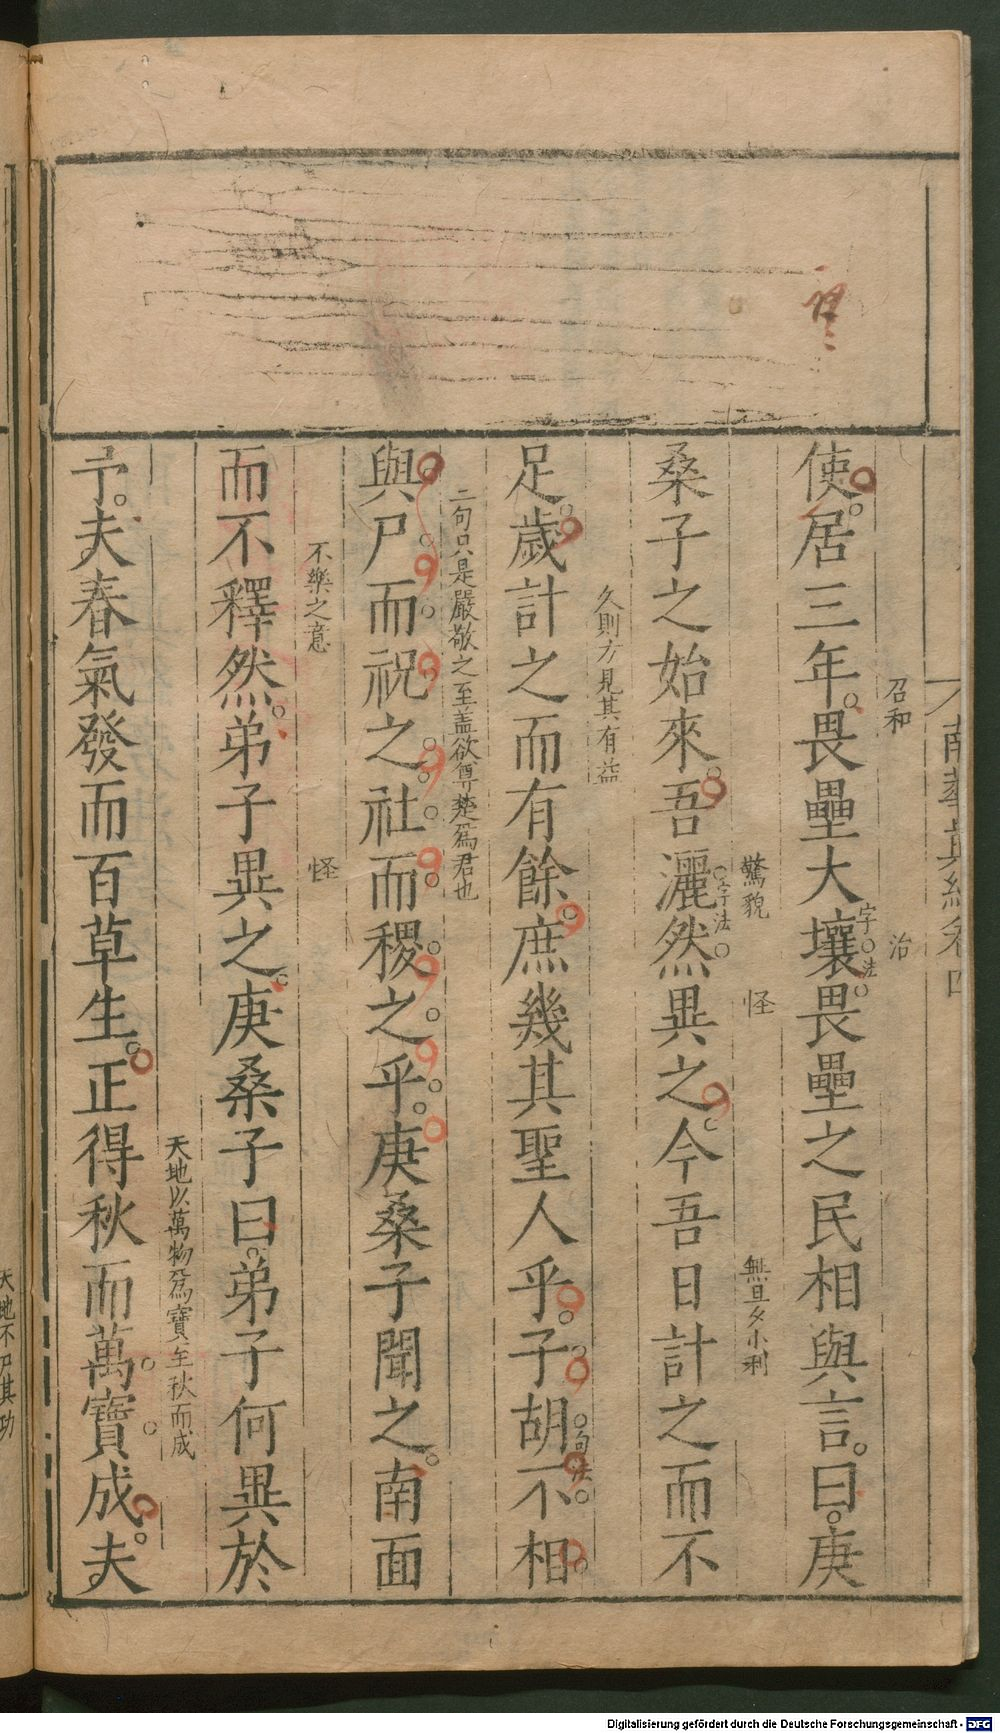 南華真經卷四
召和　治
使居三年畏壘大壤畏壘之民相與言曰庚
字法
驚貌　怪　無旦夕小利
桑子之始來吾灑然異之今吾日計之而不
字法
久則方見其有益
足歲計之而有餘庶幾其聖人乎子胡不相
句法
二句只是嚴敬之至盖欲尊楚爲君也
與尸而祝之社而稷之乎庚桑子聞之南面
不樂之意　怪
而不釋然弟子異之庚桑子曰弟子何異於
天地以萬物爲寶至秋而成
予夫春氣發而百草生正得秋而萬寶成夫
天地不尸其功
Digitalisierung gefördert durch die Deutsche Forschungsgemeinschaft - DFG